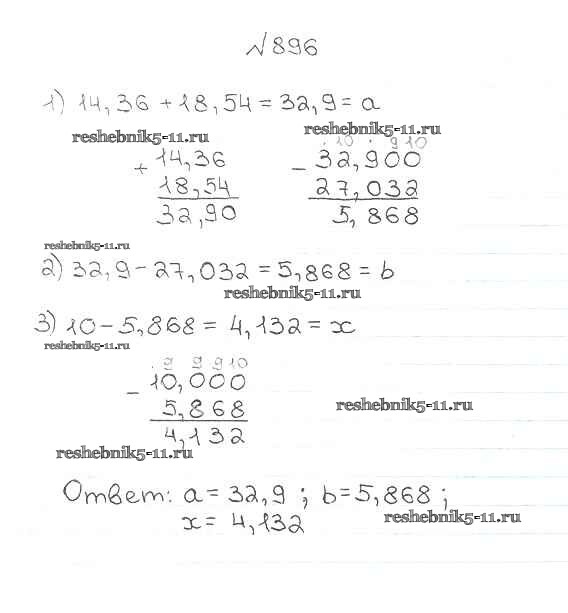 №896
1) 14,36 + 18,54 = 32,9 = a
reshebnik5-11.ru reshebnik5-11.ru
10 9 10
+ 14,36 - 32,900
18,54 27,032
32,90 5,868
reshebnik5-11.ru
2) 32,9 - 27,032 = 5,868 = b
reshebnik5-11.ru
3) 10 - 5,868 = 4,132 = x
reshebnik5-11.ru
9 9 9 10
- 10,000
5,868 reshebnik5-11.ru
4,132
reshebnik5-11.ru
Ответ: a = 32,9 ; b = 5,868 ;
x = 4,132 reshebnik5-11.ru